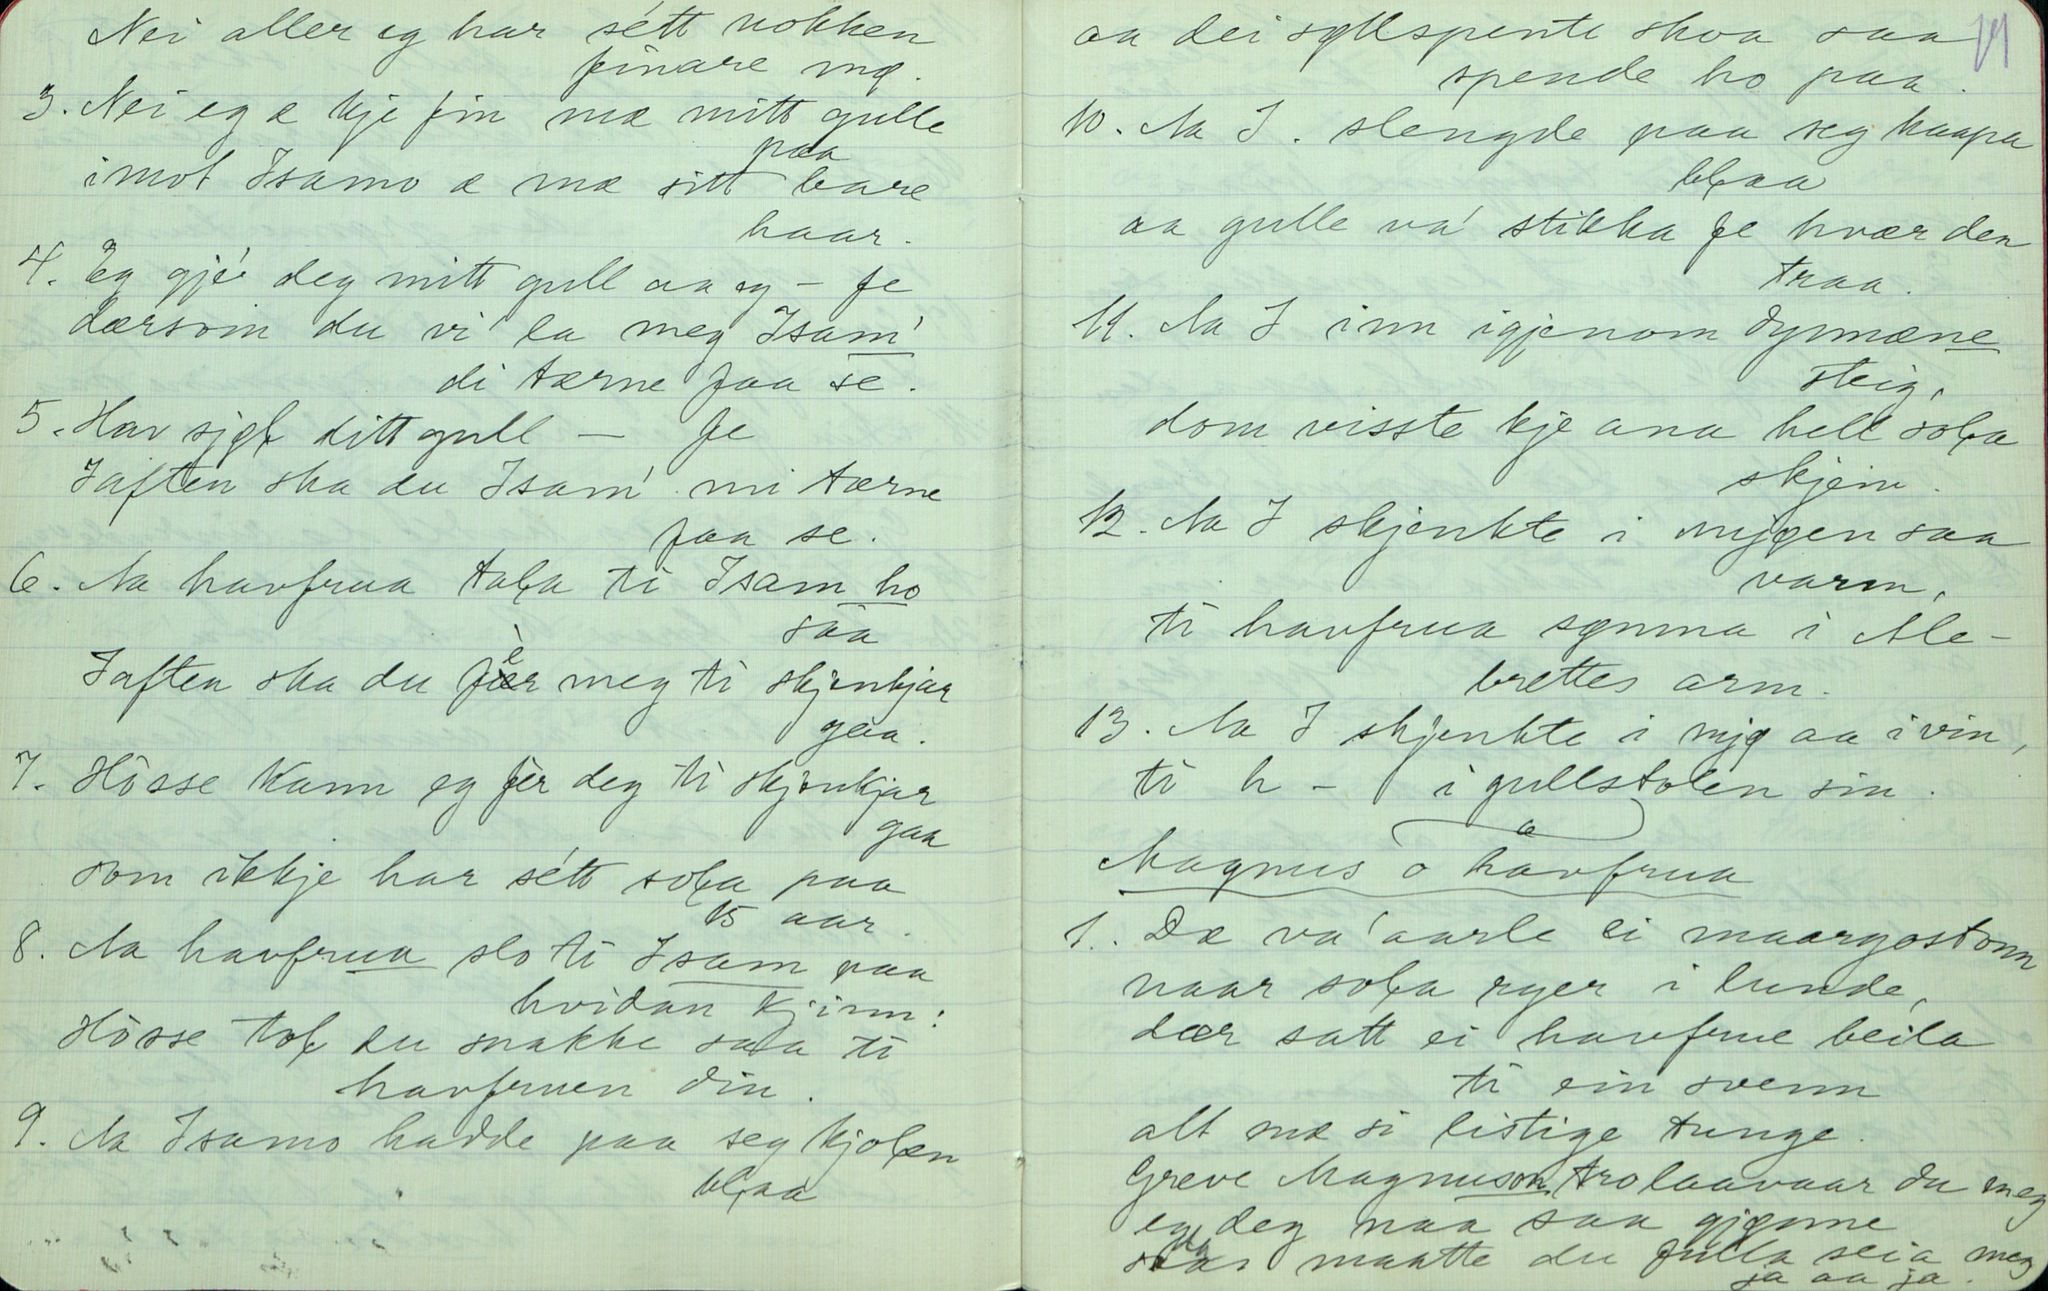 Nei aller eg har sétt nokken
finare mø.
3. Nei eg æ kje fin mæ mitt gulle
paa
imot Isamo æ mæ sitt bare
haar.
4. Eg gjé deg mitt gull aa eg – fe
dærsom du vi la meg Isam'
di tærne faa se.
5. Hav sjøł ditt gull — fe
Iaften ska du Isam' mi tærne
faa se.
6. Aa havfrua tała ti Isam ho
saa
Iaften ska du fèr meg ti skjenkjar
gaa.
7. Hòsse kann eg fèr deg ti skjenkjar
gaa
som ikkje har sétt soła paa
15 aar.
8. Aa havfrua slo ti Isam paa
hvidan kjinn:
Hòsse toł du snakke saa ti
havfruen din.
9. Aa Isamo hadde paa seg kjołen
błaa
aa dei søllspente skoa saa
spende ho paa.
10. Aa I. slengde paa seg kaapa
błaa
aa gulle va' stikka fe hvær den
traa.
11. Aa I inn igjenom dynnæne
steig,
dom visste kje ana hell soła
skjein.
12. Aa I skjenkte i mjøen saa
varm,
ti havfrua sømna i Ale-
brettes arm.
13. Aa I skjenkte i mjø aa i vin,
ti h – i gullstolen sin.
Magnus o havfrua
1. Dæ va' aarle ei maargostonn
naar soła ryer i lunde,
dær satt ei havfrue beila
ti ein svenn
alt mæ si listige tunge.
Greve Magnuson trolaavaar du meg
eg deg maa saa gjønne
maatte du fulla seia meg
ja aa ja.